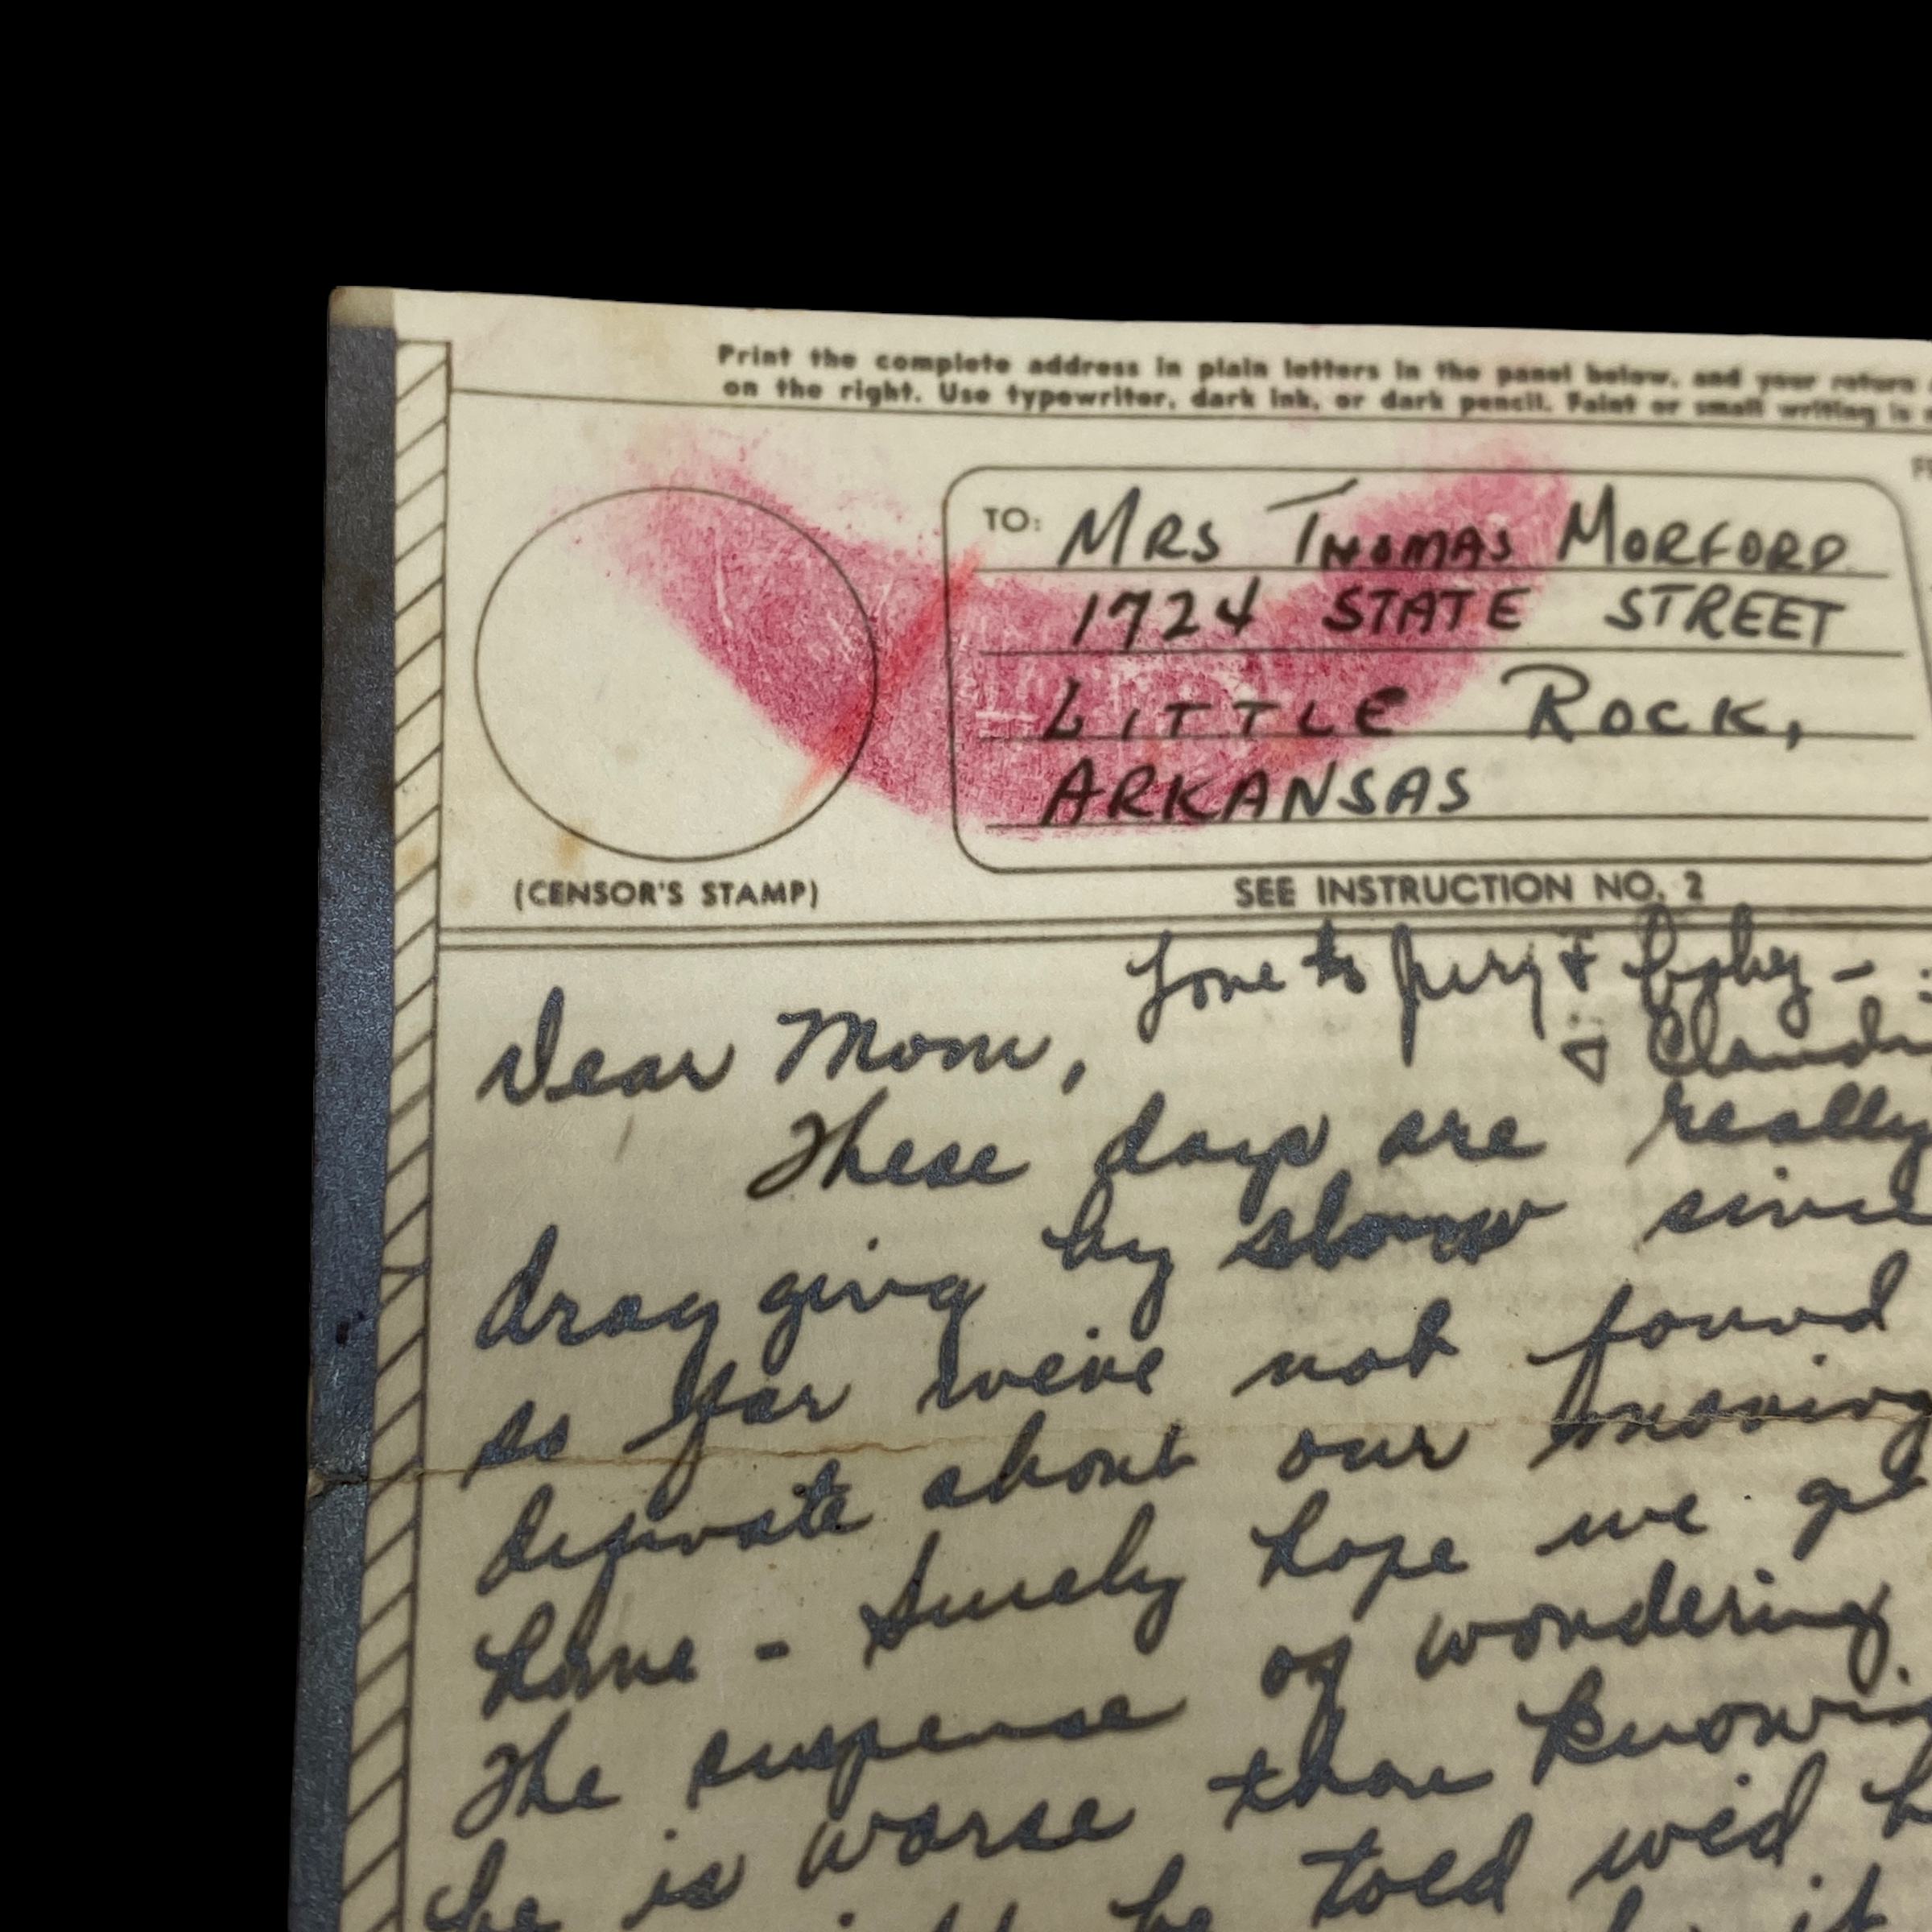 Print the complete address in plain letters in the panel below, and your return
on the right. Use typewriter, dark ink, or dark pencil. Faint or small writing is
TO: MRS THOMAS MORFORD
1724 STATE STREET
LITTLE ROCK,
ARKANSAS
(CENSOR'S STAMP)
SEE INSTRUCTION NO. 2
Love to Jerry &
& 
Dear Mom,
These days are really
dragging by slow since
so far we've not found
definate about our moving
home - Surely hope we
The suspense of wondering
is worse than
be told we'd
it